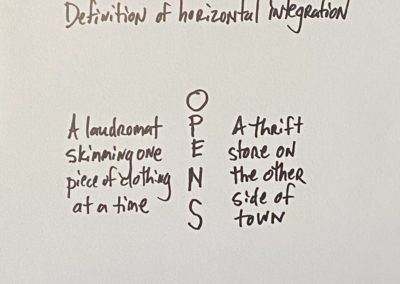 Definition of horizontal integration
A laudromat
skimming one
piece of clothing
at a time
O
P
E
N
S
A thrift
store on
the other
side of
town